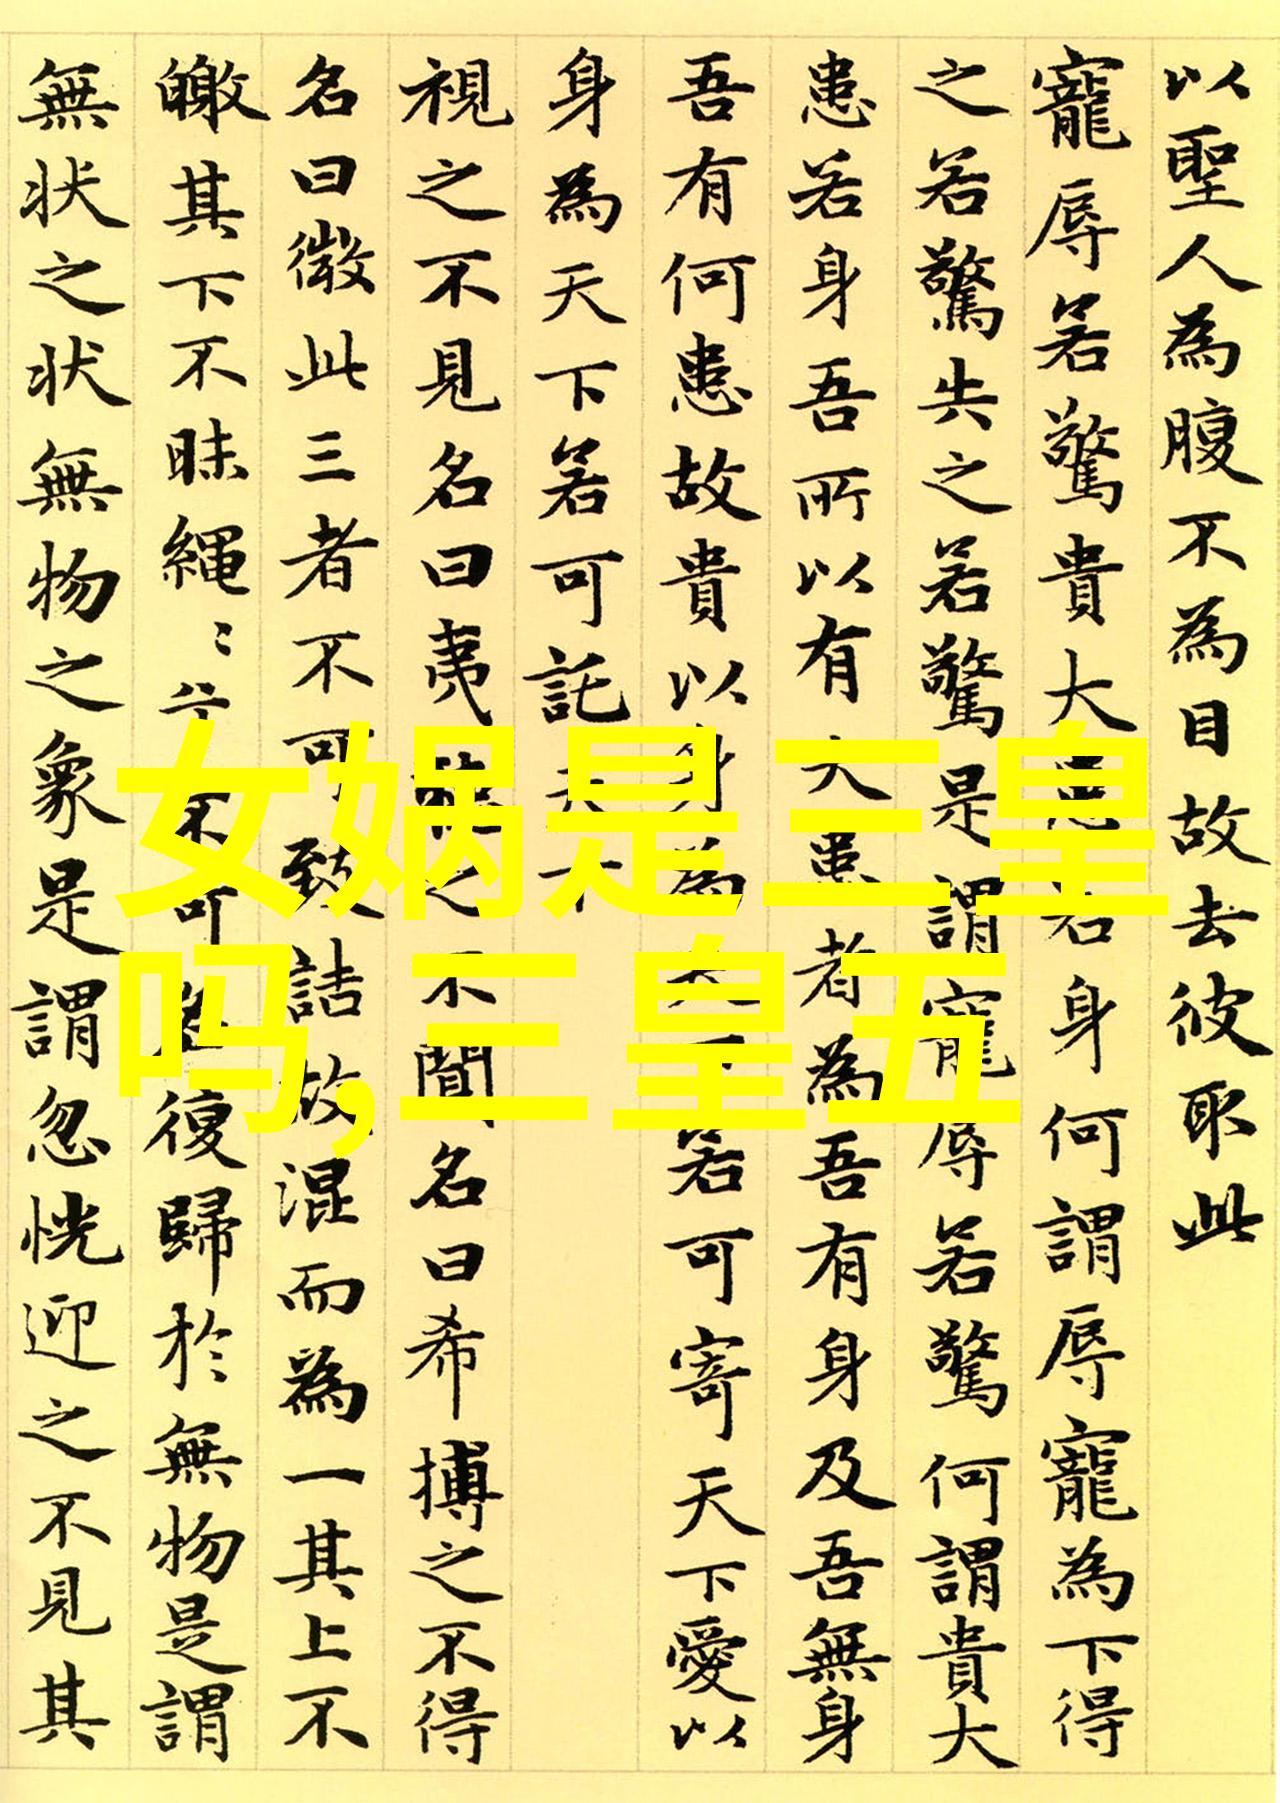 以聖人為腹不為目故去彼取此
寵辱若驚貴大患若身何謂辱寵為下得
之若驚失之若驚是謂寵辱若驚何謂貴大
患若身吾所以有大患者為吾有身及吾無身
吾有何患故貴以身為天下若可寄天下愛以
身為天下若可託天下
視之不見名曰夷聽之不聞名曰希搏之不得
名曰微此三者不可致詰故混而為一其上不
皦其下不昧繩〻兮不可名復歸於無物是謂
無状之状無物之象是謂忽恍迎之不見其
女娲是三皇
吗,三皇五